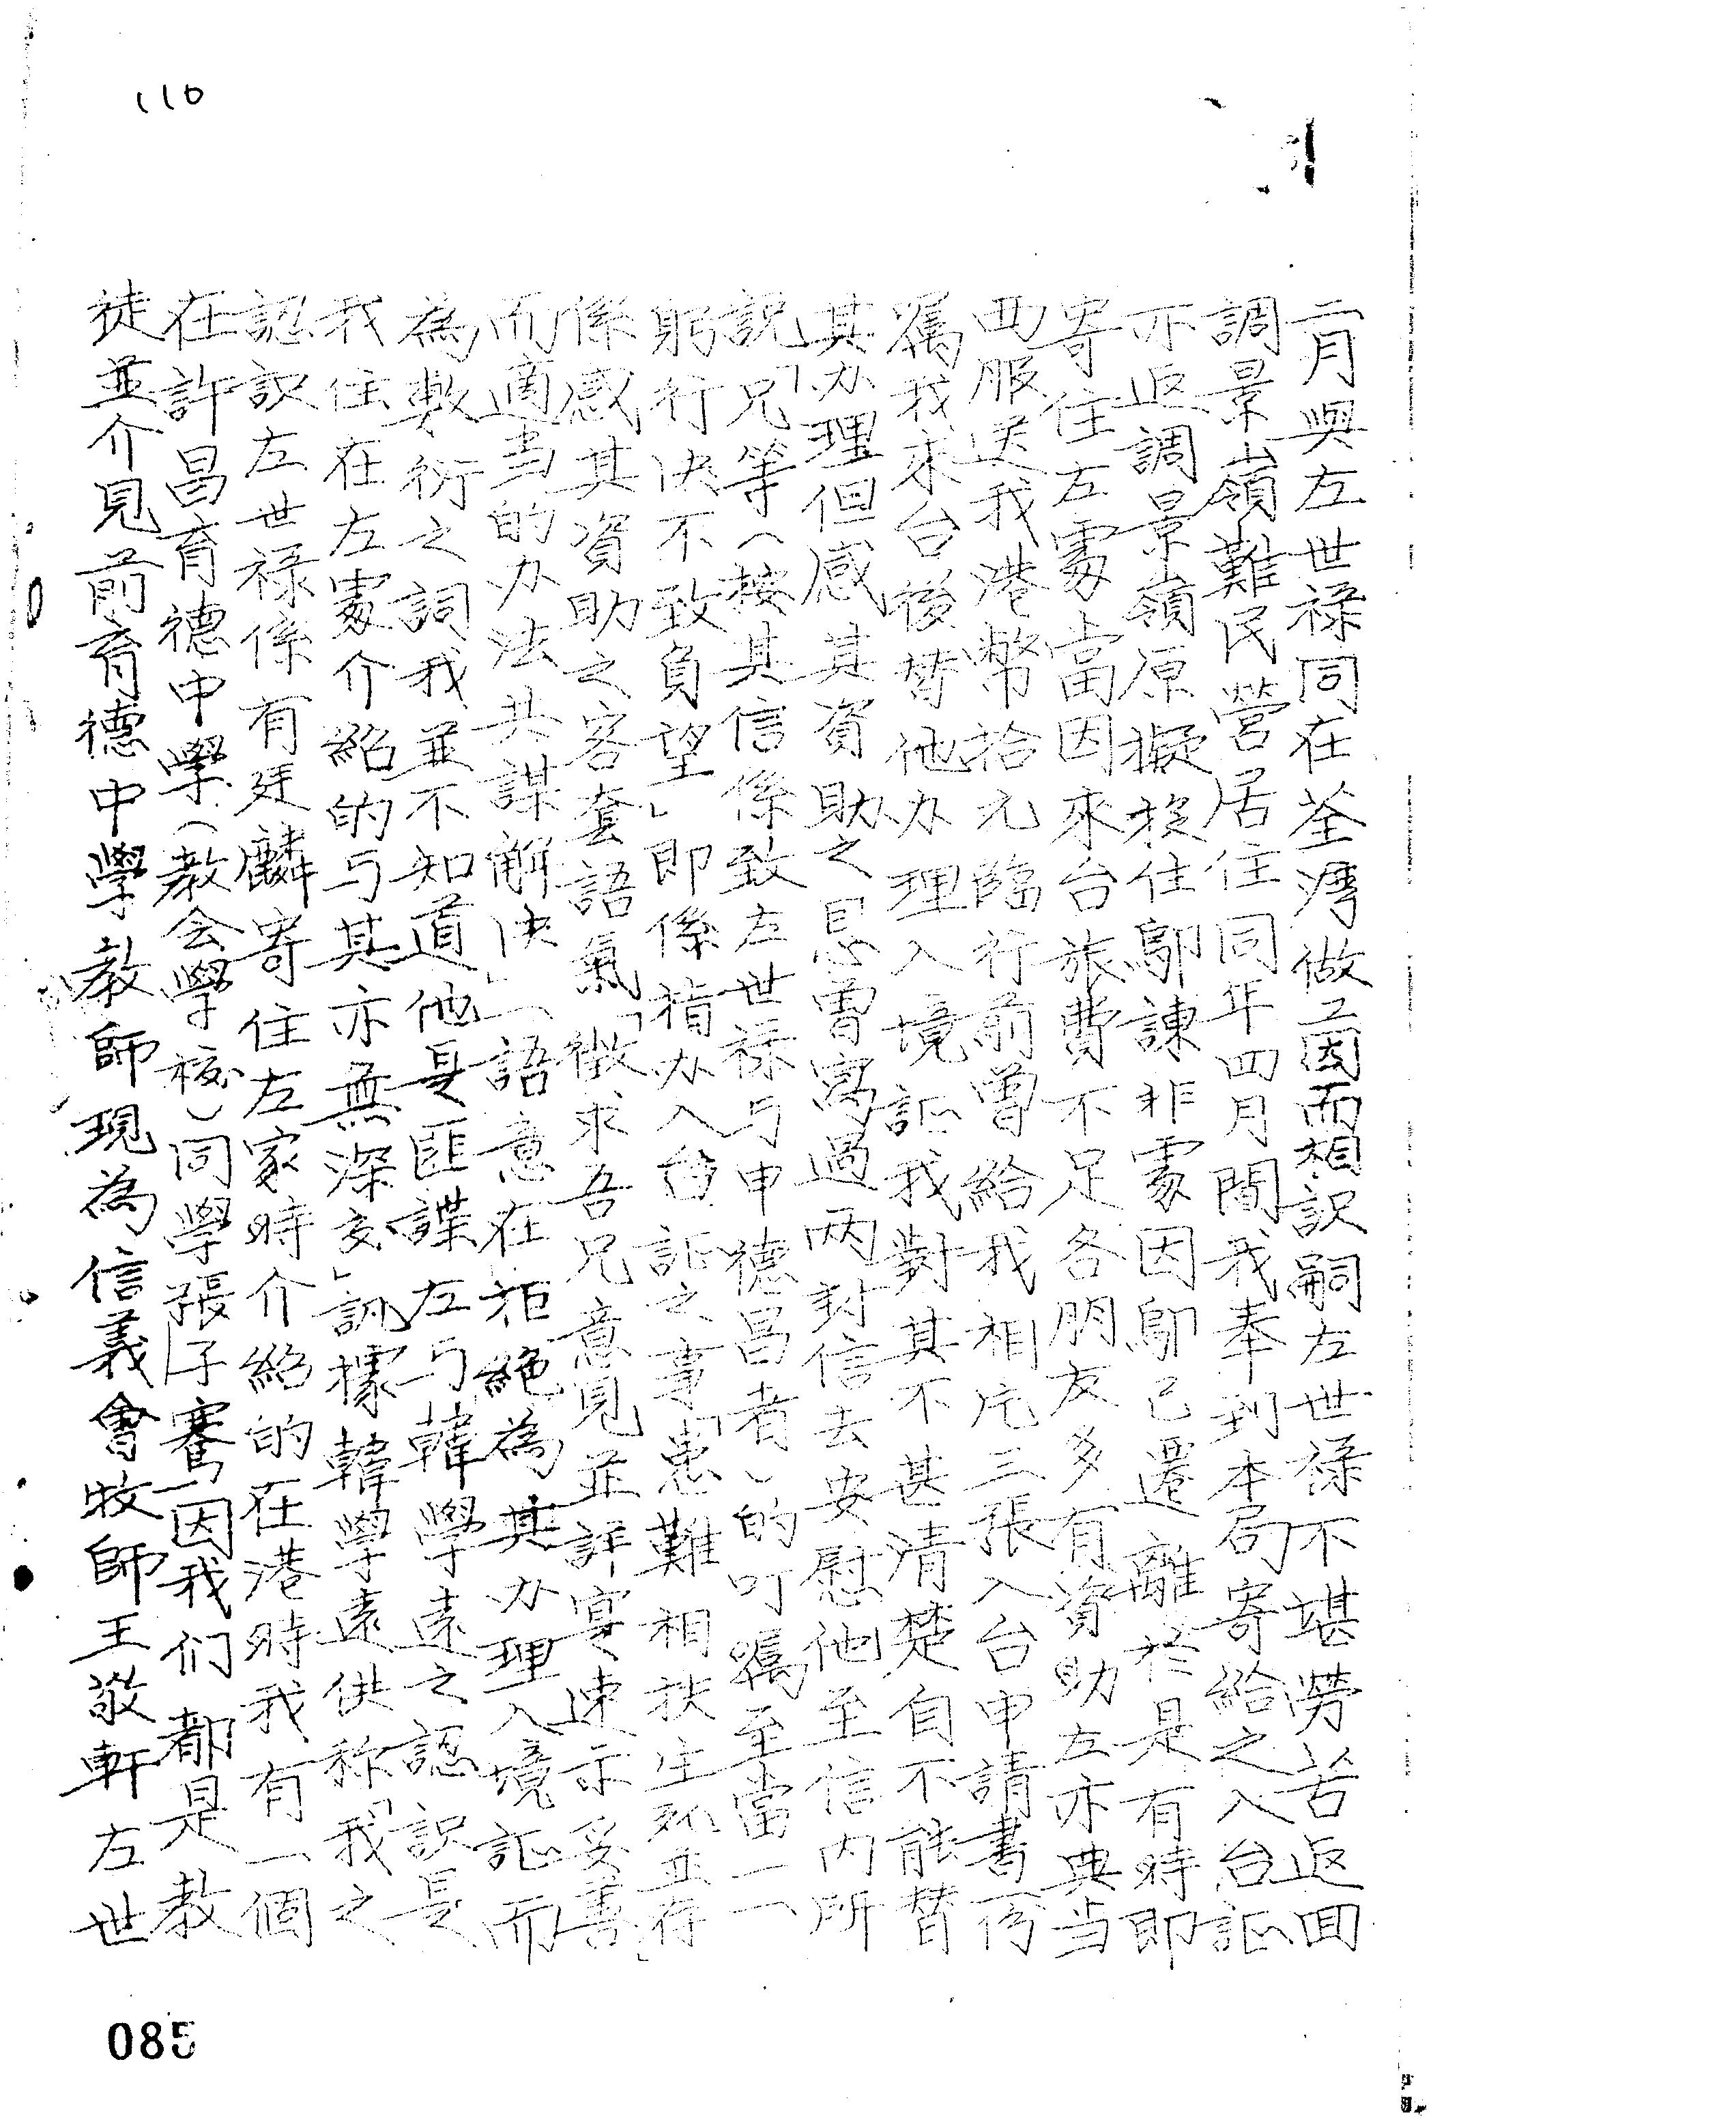 110
二月與左世祿同在荃灣做工因而相識嗣左世祿不堪勞苦返回
調景嶺難民營居住同年四月間我奉到本局寄給之入台証
亦返調景嶺原擬移住鄔諫非處因鄔已遷離於是有時即
寄住左處當因來台旅費不足各朋友多有資助左亦典当
西服送我港幣拾元臨行前曾給我相片三張入台申請書一份
囑我來台後替他办理入境証我對其不甚清楚自不能替
其办理但感其資助之恩曾寫過兩封信去安慰他至信內所
說「兄等（按其信係致左世祿与申德昌者）的叮囑至當一一
躬行决不致負望」即係指办入台証之事「患難相扶生死並存」
係感其資助之客套語氣「徵求吾兄意見並詳寔速示妥善
而適当的办法共謀解决」一語意在拒絕為其办理入境証而
為敷衍之詞我並不知道他是匪諜左与韓學遠之認識是
我住在左處介紹的与其亦無深交」訊據韓學遠供称「我之
認識左世祿係有廷麟寄住左家時介紹的在港時我有一個
在許昌育德中學（教会學校）同學張子騫因我们都是教
徒並介見前育德中學教師現為信義會牧師王敬軒左世
085